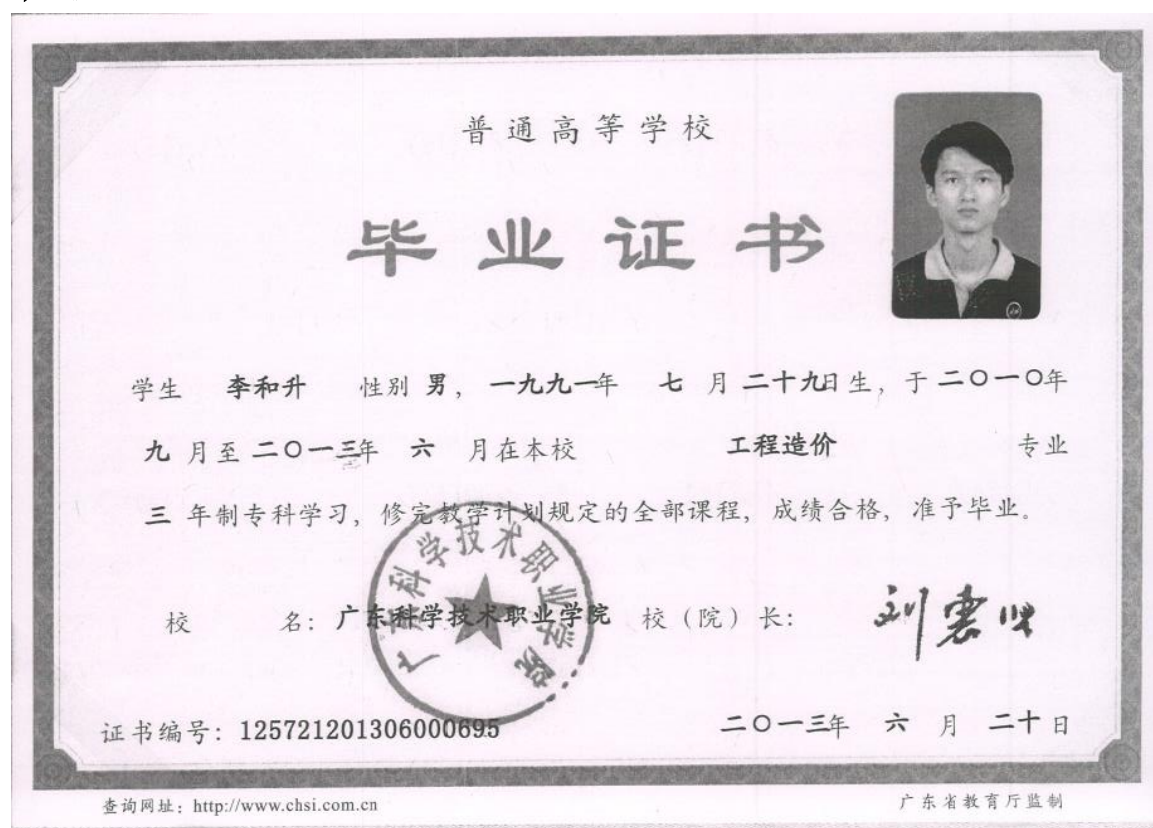 普通高等学校
毕业证书
学生 李和升 性别 男， 一九九一年 七 月 二十九日生，于 二〇一〇年
九 月至 二〇一三年 六 月在本校 工程造价 专业
三 年制专科学习，修完教学计划规定的全部课程，成绩合格，准予毕业。
广东科学技术职业学院
校 名：广东科学技术职业学院 校（院）长：
证书编号：125721201306000695 二〇一三年 六 月 二十日
查询网址：http://www.chsi.com.cn 广东省教育厅监制